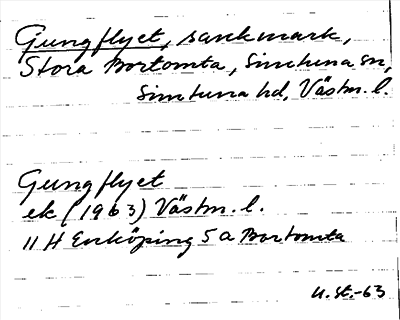 Gungflyet, sankmark,
Stora Bortomta, Simtuna sn,
Simtuna hd, Västm. l.
Gungflyet
ek (1963) Västm. l.
11 H Enköping 5 a Bortomta
U. St. -63